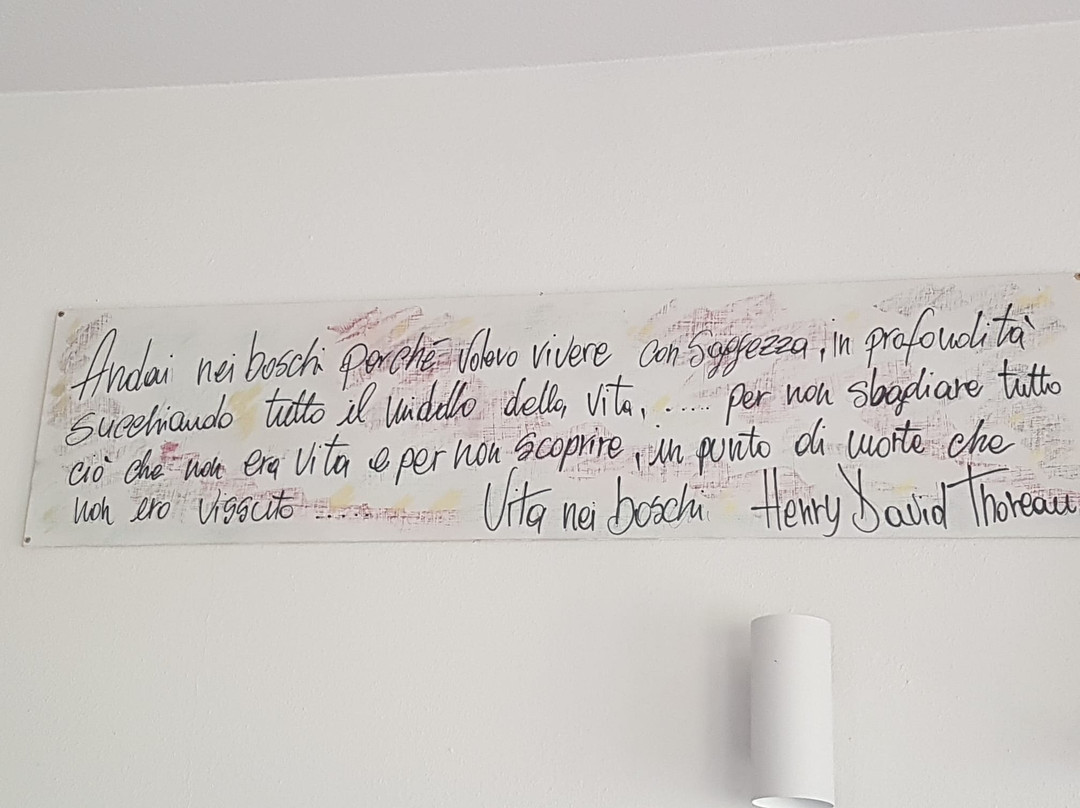 Andai nei boschi perché volevo vivere con saggezza, in profondità
succhiando tutto il midollo della vita, ..... per non sbagliare tutto
ciò che non era vita e per non scoprire, in punto di morte che
non ero vissuto ............ Vita nei boschi Henry David Thoreau